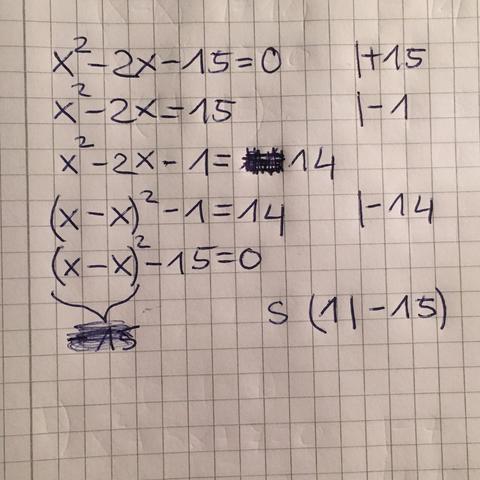 x²-2x-15=0 |+15
x²-2x=15 |-1
x²-2x-1= 14
(x-x)²-1=14 |-14
(x-x)²-15=0
S (1|-15)